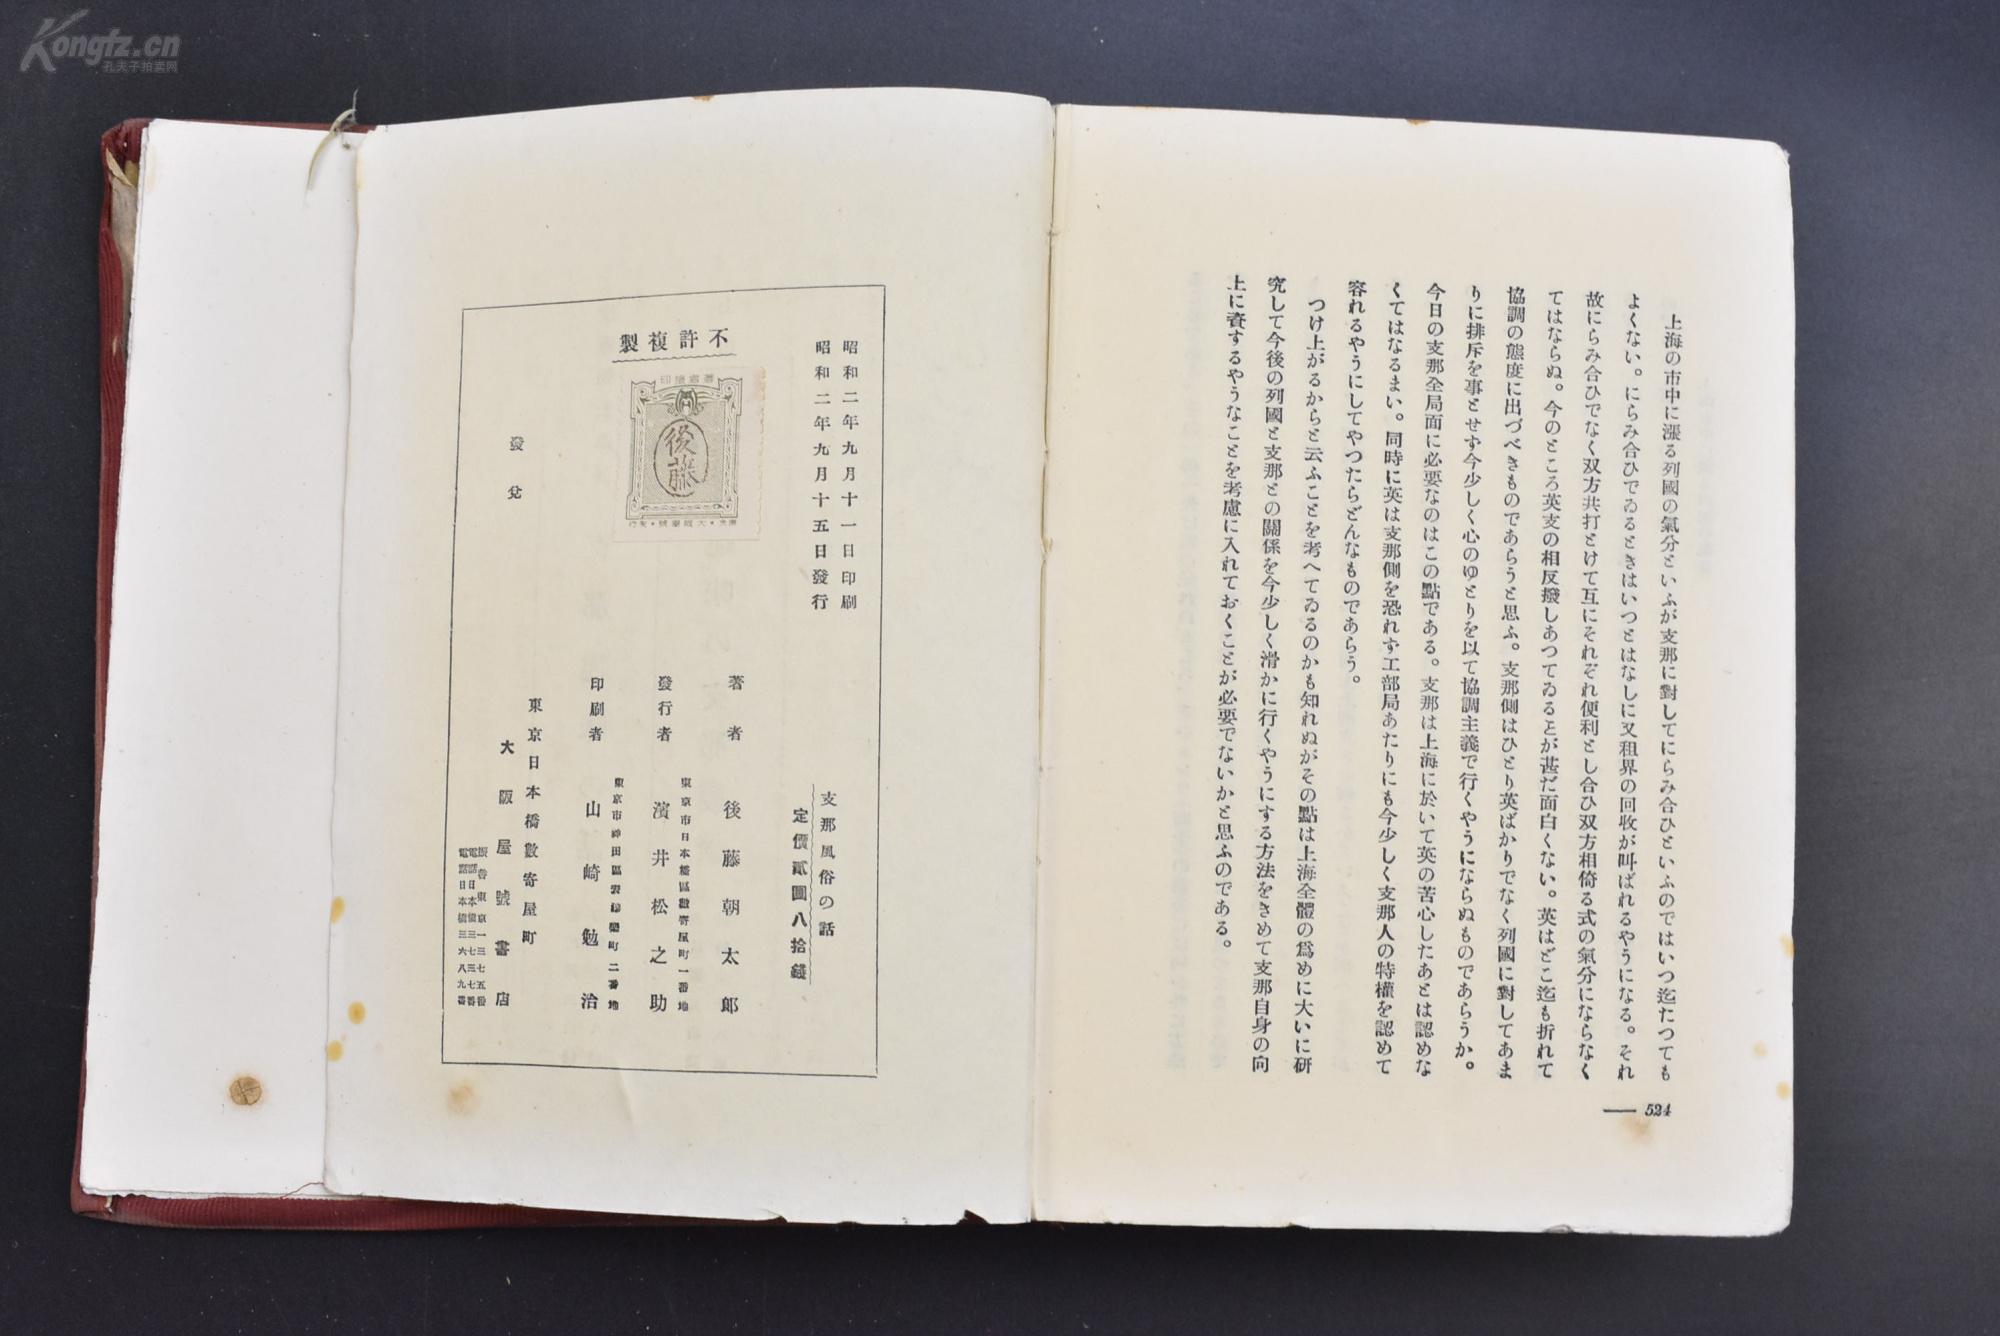 上海の市中に漲る列國の氣分といふが支那に對してにらみ合ひといふのではいつ迄たつても
よくない。にらみ合ひでゐるときはいつとはなしに又租界の回收が叫ばれるやうになる。それ
故にらみ合ひでなく双方共打とけて互にそれぞれ便利とし合ひ双方相倚る式の氣分にならなく
てはならぬ。今のところ英支の相反撥しあつてゐることが甚だ面白くない。英はどこ迄も折れて
協調の態度に出づべきものであらうと思ふ。支那側はひとり英ばかりでなく列國に對してあま
りに排斥を事とせず今少しく心のゆとりを以て協調主義で行くやうにならぬものであらうか。
今日の支那全局面に必要なのはこの點である。支那は上海に於いて英の苦心したあとは認めな
くてはなるまい。同時に英は支那側を恐れず工部局あたりにも今少しく支那人の特權を認めて
容れるやうにしてやつたらどんなものであらう。
つけ上がるからと云ふことを考へてゐるのかも知れぬがその點は上海全體の爲めに大いに研
究して今後の列國と支那との關係を今少しく滑かに行くやうにする方法をきめて支那自身の向
上に資するやうなことを考慮に入れておくことが必要でないかと思ふのである。
524
昭和二年九月十一日印刷
昭和二年九月十五日發行
不許複製
後藤
支那風俗の話
定價貳圓八拾錢
著者 後藤朝太郎
東京市日本橋區數寄屋町一番地
發行者 濱井松之助
東京市神田區表猿樂町二番地
印刷者 山崎勉治
發兌
東京日本橋數寄屋町
大阪屋號書店
振替東京一三七五番
電話日本橋三七三七番
電話日本橋三六八九番
Kongfz.cn
孔夫子拍卖网